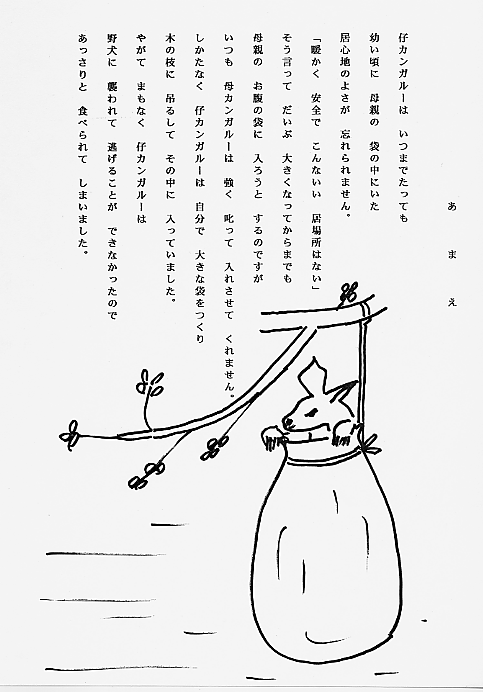 あまえ
仔カンガルーは いつまでたっても
幼い頃に 母親の 袋の中にいた
居心地のよさが 忘れられません。
「暖かく 安全で こんないい 居場所はない」
そう言って だいぶ 大きくなってからまでも
母親の お腹の袋に 入ろうと するのですが
いつも 母カンガルーは 強く 叱って 入れさせて くれません。
しかたなく 仔カンガルーは 自分で 大きな袋をつくり
木の枝に 吊るして その中に 入っていました。
やがて まもなく 仔カンガルーは
野犬に 襲われて 逃げることが できなかったので
あっさりと 食べられて しまいました。